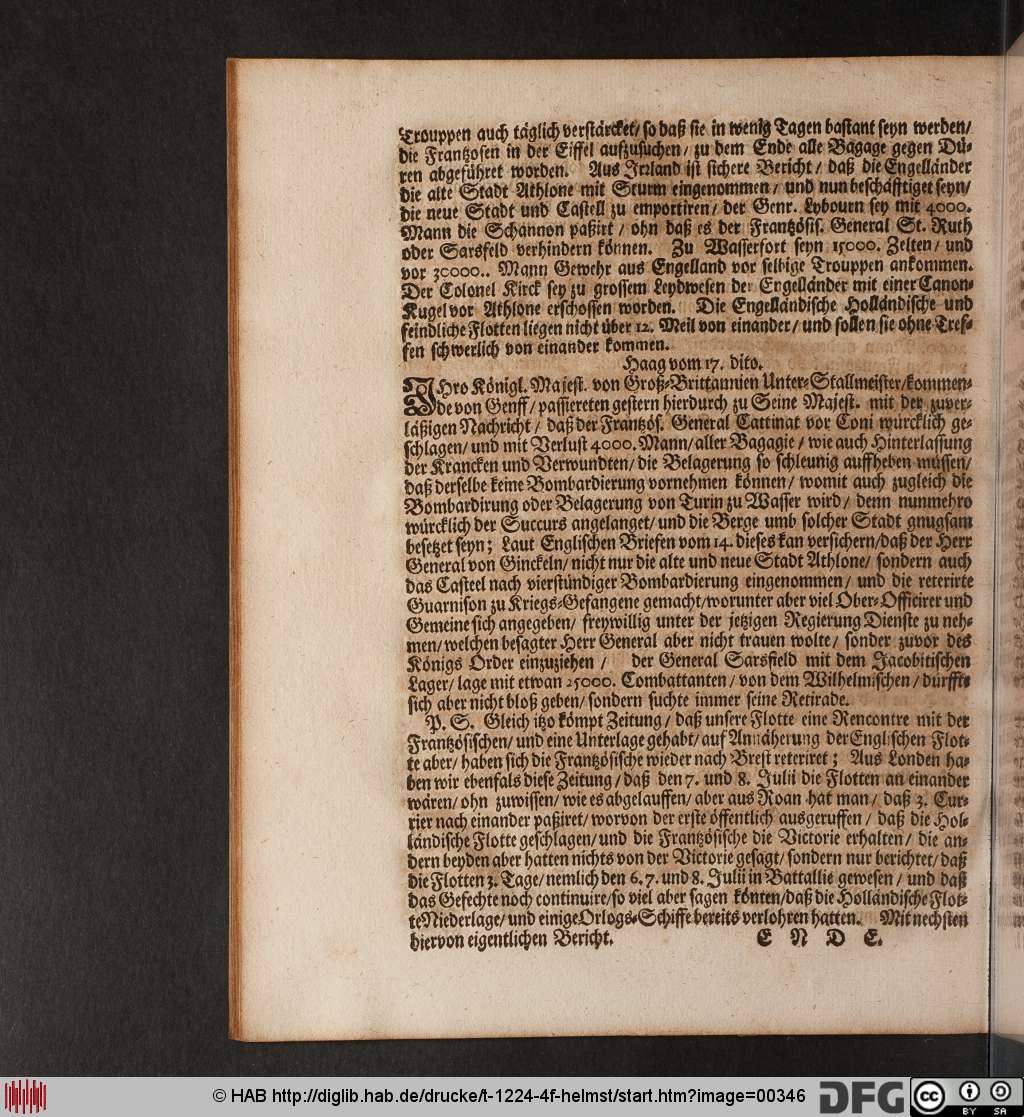 Trouppen auch täglich verstärcket/ so daß sie in wenig Tagen bastant seyn werden/
die Frantzosen in der Eiffel aufzusuchen/ zu dem Ende alle Bagage gegen Dü-
ren abgeführet worden. Aus Irrland ist sichere Bericht/ daß die Engelländer
die alte Stadt Athlone mit Sturm eingenommen/ und nun beschäfftiget seyn/
die neue Stadt und Castell zu emportiren/ der Genr. Lybourn sey mit 4000.
Mann die Schannon paßirt/ ohn daß es der Frantzösis. General St. Ruth
oder Sarsfeld verhindern können. Zu Wasserfort seyn 15000. Zelten/ und
vor 30000.. Mann Gewehr aus Engelland vor selbige Trouppen ankommen.
Der Colonel Kirck sey zu grossem Leydwesen der Engelländer mit einer Canon-
Kugel vor Athlone erschossen worden. Die Engelländische Holländische und
feindliche Flotten liegen nicht über 12. Meil von einander/ und sollen sie ohne Tref-
fen schwerlich von einander kommen.
Haag vom 17. dito.
IHro Königl. Majest. von Groß-Brittannien Unter-Stallmeister/kommen-
de von Genff/ passiereten gestern hierdurch zu Seine Majest. mit der zuver-
läßigen Nachricht/ daß der Frantzös. General Cattinat vor Coni würcklich ge-
schlagen/ und mit Verlust 4000. Mann/ aller Bagagie/ wie auch Hinterlassung
der Krancken und Verwundten/ die Belagerung so schleunig auffheben müssen/
daß derselbe keine Bombardierung vornehmen können/ womit auch zugleich die
Bombardirung oder Belagerung von Turin zu Wasser wird/ denn nunmehro
würcklich der Succurs angelanget/ und die Berge umb solcher Stadt gnugsam
besetzet seyn; Laut Englischen Briefen vom 14. dieses kan versichern/daß der Herr
General von Ginckeln/ nicht nur die alte und neue Stadt Athlone/ sondern auch
das Casteel nach vierstündiger Bombardierung eingenommen/ und die reterirte
Guarnison zu Kriegs-Gefangene gemacht/worunter aber viel Ober-Officirer und
Gemeine sich angegeben/ freywillig unter der jetzigen Regierung Dienste zu neh-
men/welchen besagter Herr General aber nicht trauen wolte/ sonder zuvor des
Königs Order einzuziehen/ der General Sarsfield mit dem Jacobitischen
Lager/ lage mit etwan 25000. Combattanten/ von dem Wilhelmischen/ dürffte
sich aber nicht bloß geben/ sondern suchte immer seine Retirade.
P. S. Gleich itzo kömpt Zeitung/ daß unsere Flotte eine Rencontre mit der
Frantzösischen/ und eine Unterlage gehabt/ auf Annäherung der Englischen Flot-
te aber/ haben sich die Frantzösische wieder nach Brest reteriret; Aus Londen ha-
ben wir ebenfals diese Zeitung/ daß den 7. und 8. Julii die Flotten an einander
wären/ ohn zuwissen/ wie es abgelauffen/ aber aus Roan hat man/ daß 3. Cur-
rier nach einander paßiret/ worvon der erste öffentlich ausgeruffen/ daß die Hol-
ländische Flotte geschlagen/ und die Frantzösische die Victorie erhalten/ die an-
dern beyden aber hatten nichts von der Victorie gesagt/ sondern nur berichtet/ daß
die Flotten 3. Tage/ nemlich den 6. 7. und 8. Julii in Battallie gewesen/ und daß
das Gefechte noch continuire/ so viel aber sagen könten/daß die Holländische Flot-
te Niederlage/ und einige Orlogs-Schiffe bereits verlohren hatten. Mit nechsten
hiervon eigentlichen Bericht. E N D E.
© HAB http://diglib.hab.de/drucke/t-1224-4f-helmst/start.htm?image=00346
DFG
cc BY SA